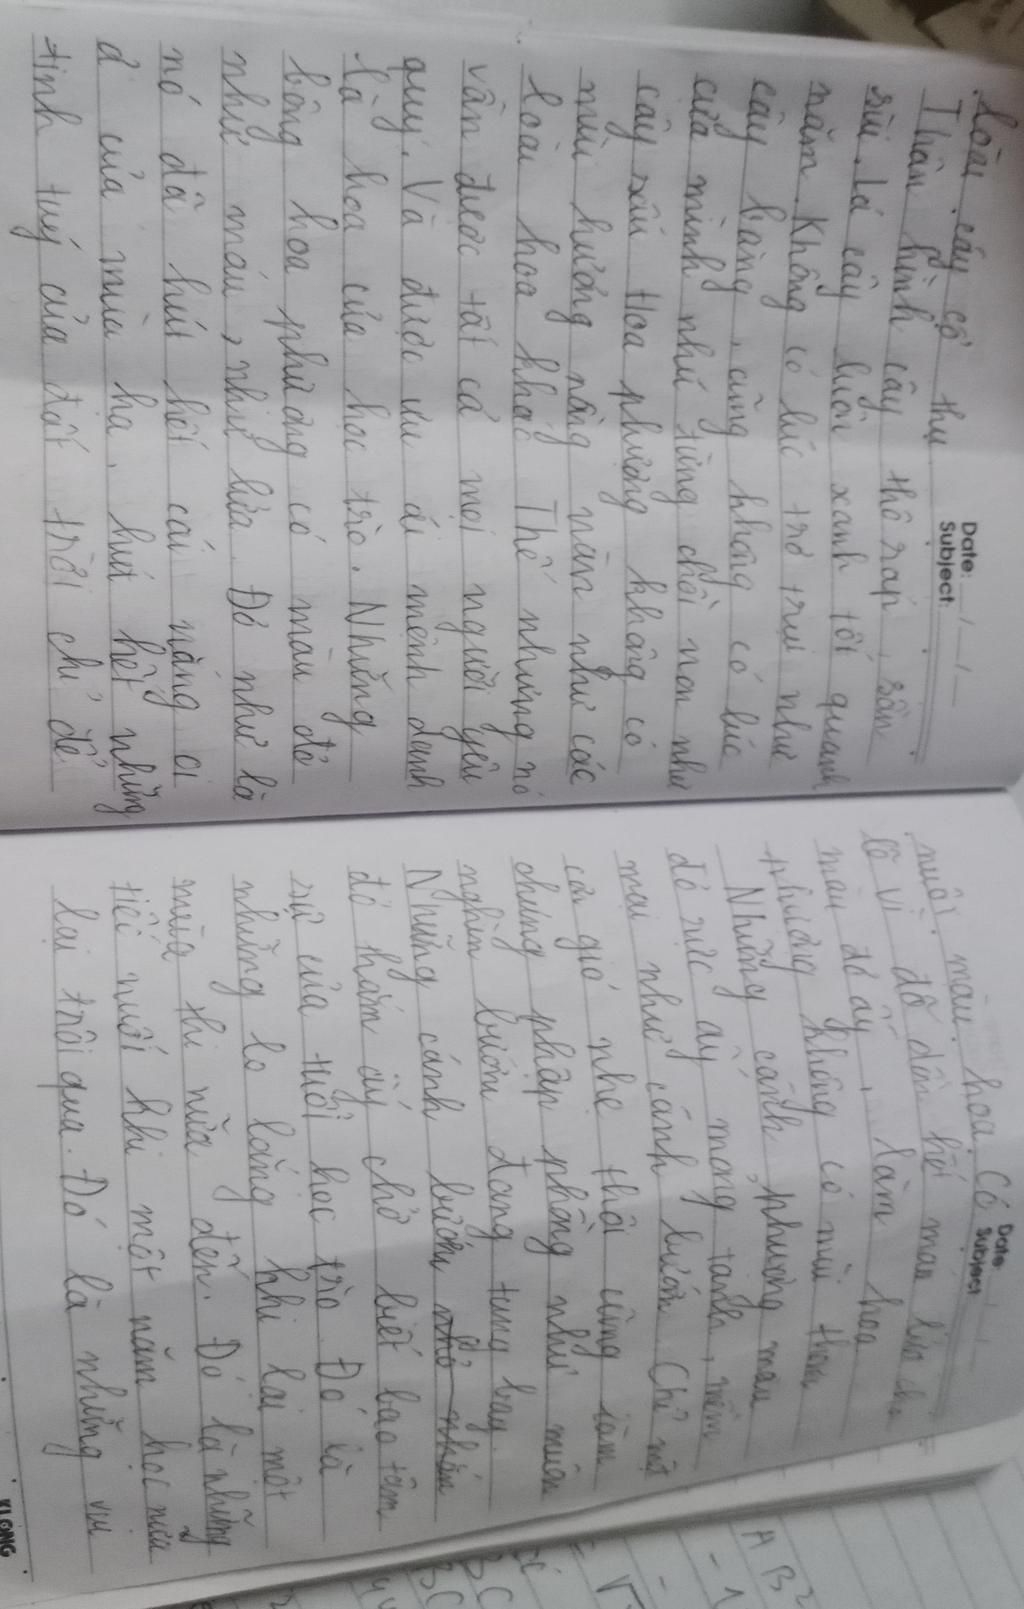 Date: _/_/_
Subject:
loài cây cổ thụ.
Thân hình cây thô ráp, sần
sùi. Lá cây luôn xanh tốt quanh
năm. Không có lúc trơ trụi như
cây bàng, cũng không có lúc
cựa mình nhú từng chồi non như
cây sấu. Hoa phượng không có
mùi hương nồng nàn như các
loài hoa khác. Thế nhưng nó
vẫn được tất cả mọi người yêu
quý. Và được ưu ái mệnh danh
là hoa của học trò. Những
bông hoa phượng có màu đỏ
như máu, như lửa. Đó như là
nó đã hút hết cái nắng oi
ả của mùa hạ, hút hết những
tinh tuý của đất trời chỉ để
Date:
Subject
nuôi màu hoa. Có
lẽ vì đỡ dồn hết máu lửa cho
màu đỏ ấy, làm hoa
phượng không có mùi thơm
Những cánh phượng màu
đỏ rực ấy mong tanh, mềm
mại như cánh bướm. Chỉ một
cơn gió nhẹ thôi cũng làm
chúng phập phồng như muôn
nghìn bướm đang tung bay.
Những cánh bướm đỏ
đỏ thắm ấy chở biết bao tâm
sự của tuổi học trò. Đó là
những lo lắng khi lại một
mùa thi nữa đến. Đó là những
tiếc nuối khi một năm học nữa
lại trôi qua. Đó là những vui
KLONG
A B²